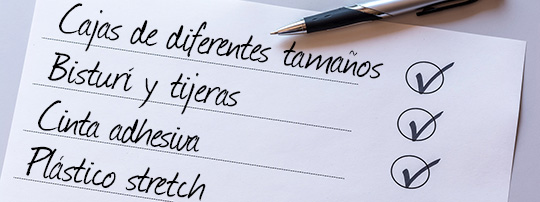 Cajas de diferentes tamaños
Bisturí y tijeras
Cinta adhesiva
Plástico stretch